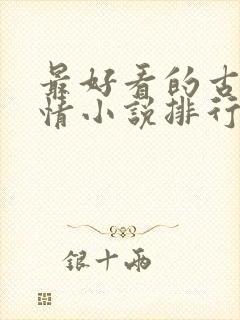 最好看的古
情小说排行
银十两